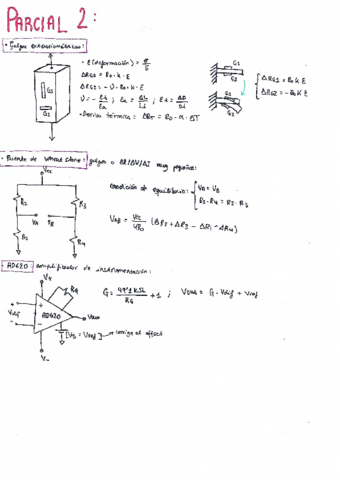 PARCIAL 2:
· Galgas extensiométricas:
· E (deformación) = σ/E
ΔRG1 = R0·K·E
ΔRG2 = -υ·R0·K·E
υ = - Et/Ea ; Ea = ΔL/Li ; Et = ΔD/Di
· Deriva térmica: ΔRT = R0·α·ΔT
G1
G2
G1
G2
G1
G2
ΔRG1 = R0 K E
ΔRG2 = -R0 K E
· Puente de Wheatstone: galgas o ΔR/ΔV/ΔI muy pequeños:
Vcc
R1
R3
VA
VB
R2
R4
Condición de equilibrio:
VA = VB
R1·R4 = R2·R3
VAB = Vcc/4R0 (ΔR2 + ΔR3 - ΔR1 - ΔR4)
· AD620: amplificador de instrumentación:
V+
RG
+
Vdif
-
AD620
Vout
V-
G = 49'4 KΩ/RG + 1 ; Vout = G·Vdif + Vref
[V5 = Vref] → corrige el offset